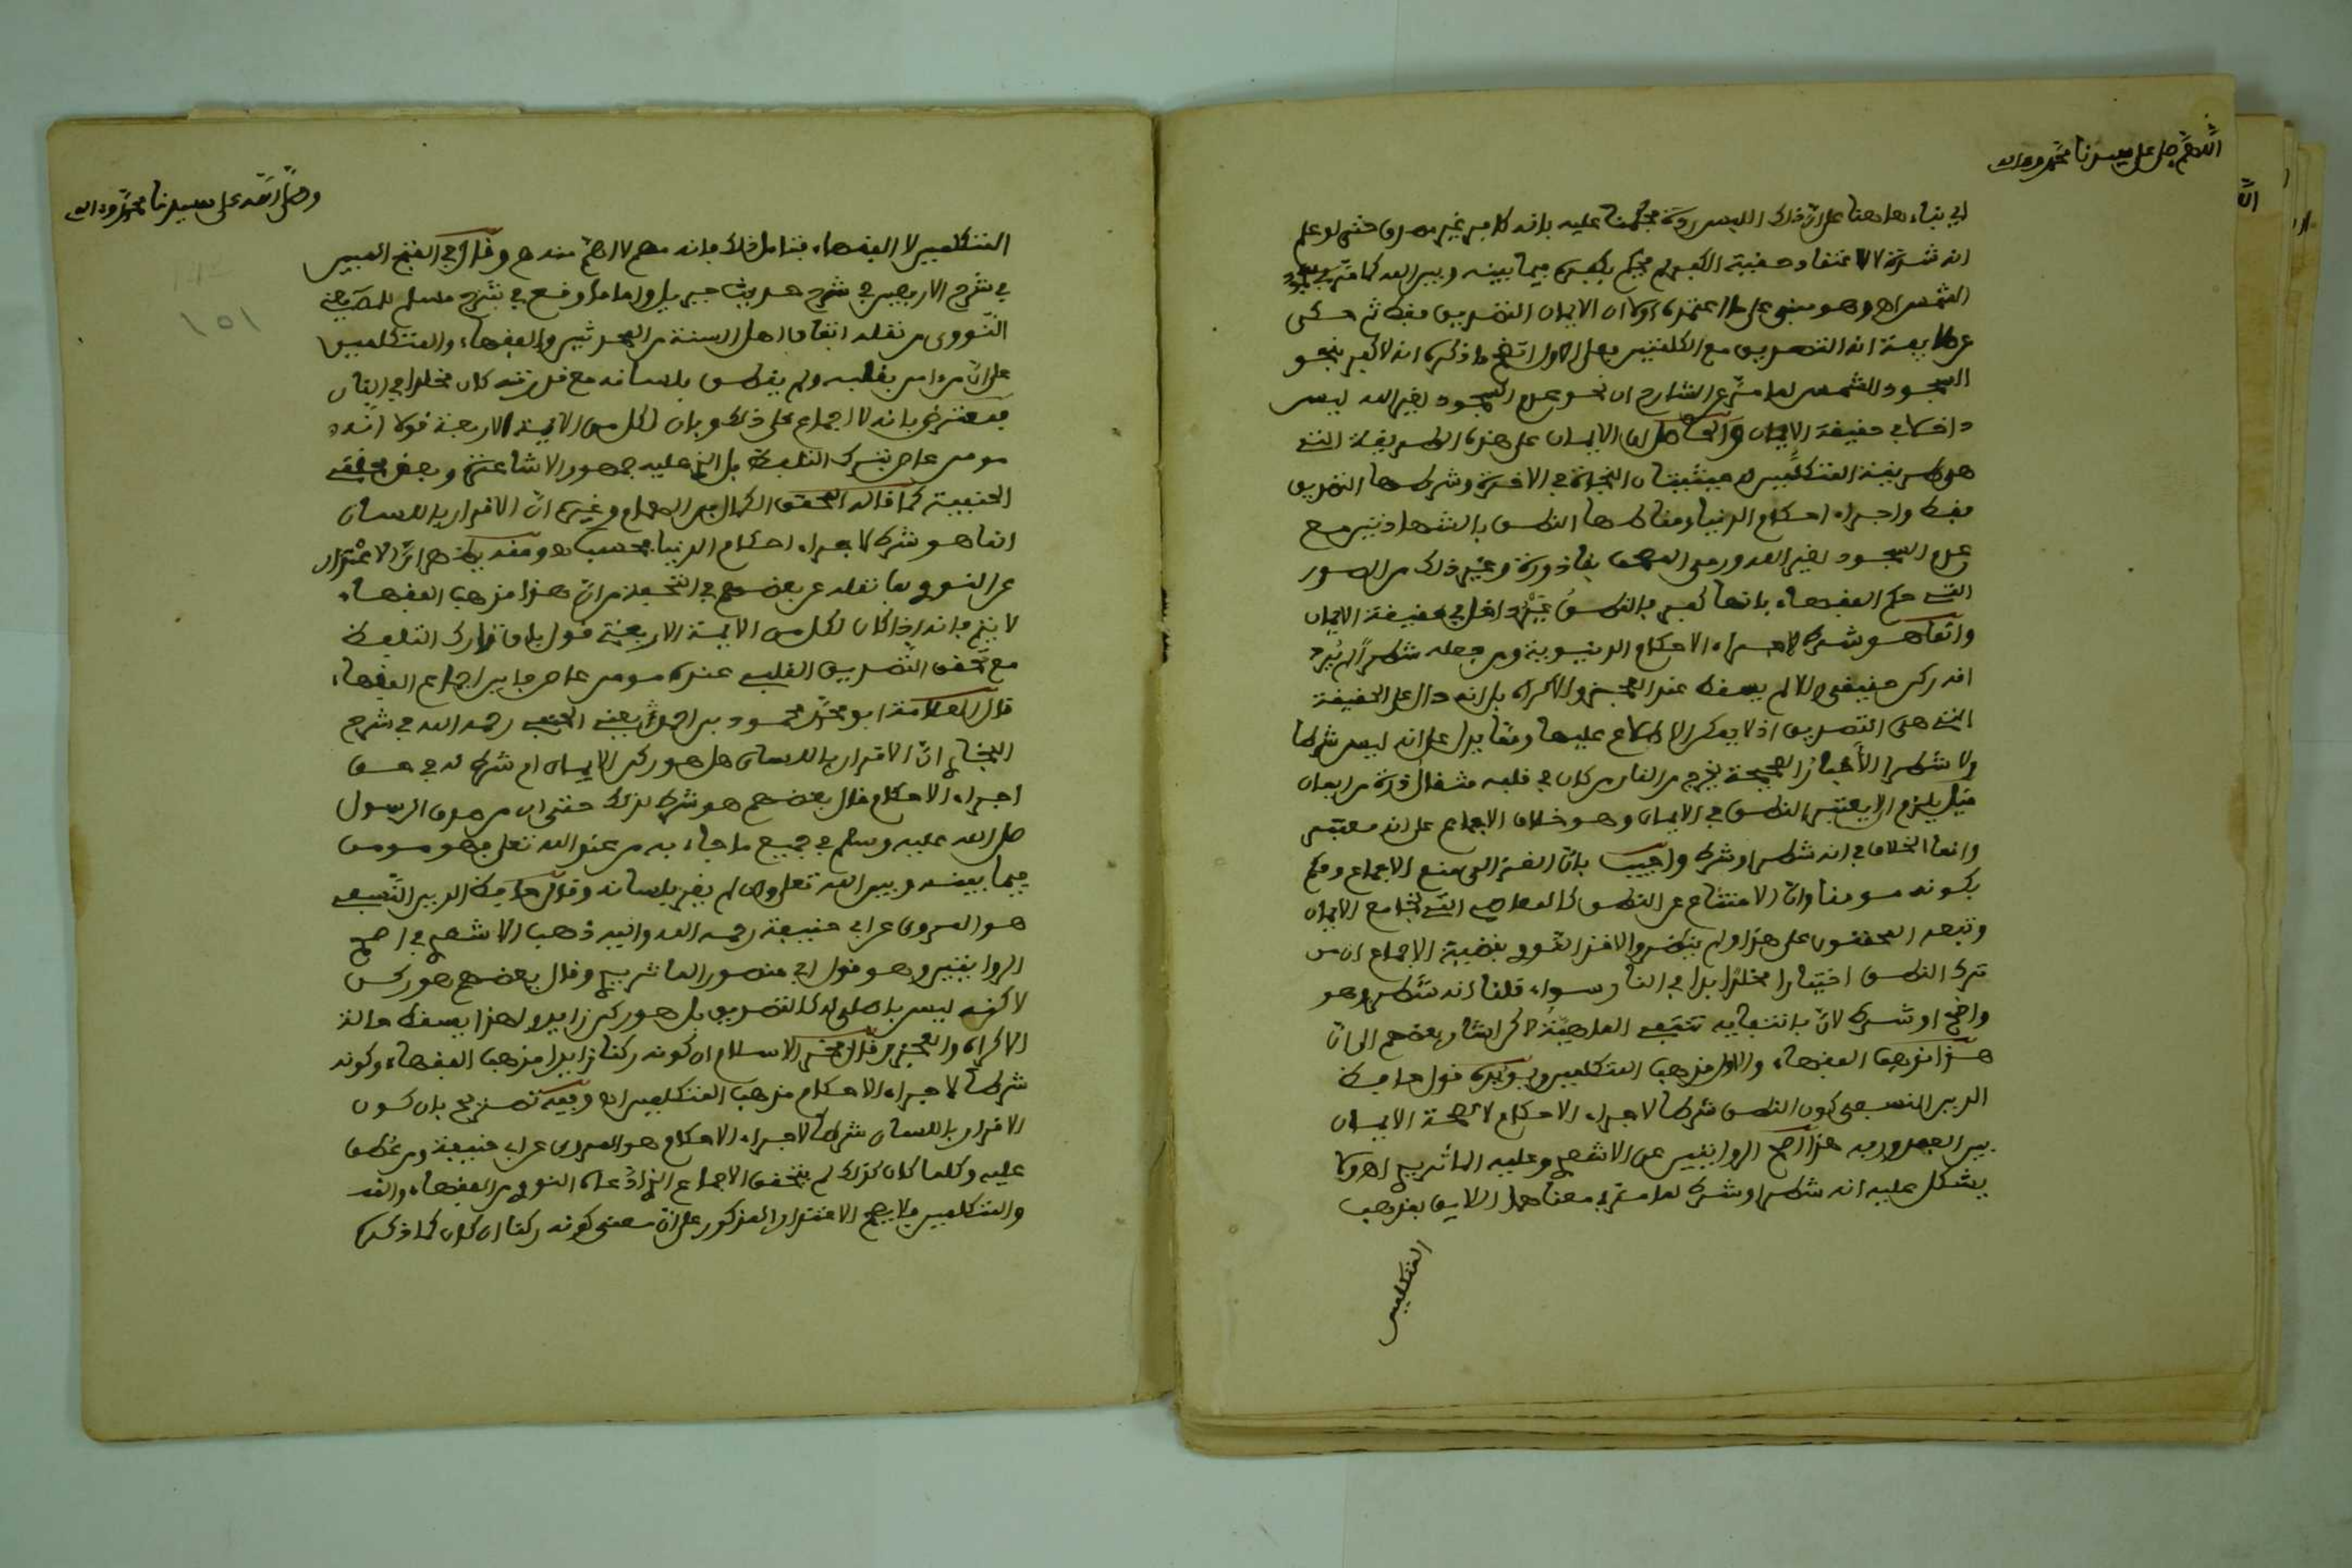 اللهم صل على سيدنا محمد وءاله
اي بناء ها هنا على ان ذلك اللبس ردة محكمنا عليه بانه كافر غير مصدق حتى لو علم
انه شدة لا لاعتقاد حقيقة الكفر لم يحكم بكفره فيما بينه وبين الله كما مر في سجود
الشمس اه وهو مبني على ما اعتمده اولا ان الايمان التصديق فقط ثم حكى
عن طايفة انه التصديق مع الكلمتين فعلى الاول اتضح ما ذكره انه لا كفر بنحو
السجود للشمس لما مر عن الشارح ان نحو عدم السجود لغير الله ليس
داخلا في حقيقة الايمان والحاصل ان الايمان على هذه الطريقة التي
هي طريقة المتكلمين له حيثيتان النجاة في الاخرة وشرطها التصديق
فقط واجراء احكام الدنيا ومناطها النطق بالشهادتين مع
عدم السجود لغير الله ورمي المصحف بقاذورة وغير ذلك من الصور
التي حكم الفقهاء بانها كفر فالنطق غير داخل في حقيقة الايمان
وانما هو شرط لاجراء الاحكام الدنيوية ومن جعله شطرا لم يرد
انه ركن حقيقي والا لم يسقط عند العجز والاكراه بل انه دال على الحقيقة
التي هي التصديق اذ لا يمكن الاطلاع عليها ومما يدل على انه ليس شرطا
ولا شطرا الاخبار الصحيحة يخرج من النار من كان في قلبه مثقال ذرة من ايمان
قيل يلزم ان لا يعتبر النطق في الايمان وهو خلاف الاجماع على انه معتبر
وانما الخلاف في انه شطر او شرط واجيب بان الغزالي منع الاجماع وحكم
بكونه مومنا وان الامتناع عن النطق كالمعاصي التي تجامع الايمان
وتبعه المحققون على هذا ولم ينظروا لاخذ النووي بقضية الاجماع ان من
ترك النطق اختيارا مخلد ابدا في النار سواء قلنا انه شطر وهو
واضح او شرط لان بانتفايه تنتفي الماهية لاكن اشار بعضهم الى ان
هذا مذهب الفقهاء والاول مذهب المتكلمين ويويده قول حافظ
الدين النسفي كون النطق شرطا لاجراء الاحكام لا لصحة الايمان
بين العبد وربه هذا اصح الروايتين عن الاشعري وعليه الماتريدي اه ولا
يشكل عليه انه شطر او شرط لما مر في معناهما اللايق بمذهب
المتكلمين
وصلى الله على سيدنا محمد وءاله
المتكلمين لا الفقهاء فتامل ذلك فانه مهم لا اهم منه اه وقال في الفتح المبين
في شرح الاربعين في شرح حديث جبريل واما ما وقع في شرح مسلم للمصنف
النووي من نقله اتفاق اهل السنة من المحدثين والفقهاء والمتكلمين
على ان من امن بقلبه ولم ينطق بلسانه مع قدرته كان مخلدا في النار
فمعترض بانه لا اجماع على ذلك وبان لكل من الايمة الاربعة قولا انه
مومن عاص بترك التلفظ بل الذي عليه جمهور الاشاعرة وبعض محققي
الحنفية كما قاله المحقق الكمال بن الهمام وغيره ان الاقرار باللسان
انما هو شرط لاجراء احكام الدنيا فحسب اه ومنه يظهر ان الاعتذار
عن النووي بما نقله عن بعضهم في التحفة من ان هذا مذهب الفقهاء
لا يتم فانه اذا كان لكل من الايمة الاربعة قول بان تارك التلفظ
مع تحقق التصديق القلبي عنده مومن عاص فاين اجماع الفقهاء
قال العلامة ابو محمد محمود بن احمد يعني الحنفي رحمه الله في شرح
البخاري ان الاقرار باللسان هل هو ركن الايمان ام شرط له في حق
اجراء الاحكام قال بعضهم هو شرط لذلك حتى ان من صدق الرسول
صلى الله عليه وسلم في جميع ما جاء به من عند الله تعلى فهو مومن
فيما بينه وبين الله تعلى وان لم يقر بلسانه وقال حافظ الدين النسفي
هو المروي عن ابي حنيفة رحمه الله واليه ذهب الاشعري في اصح
الروايتين وهو قول ابي منصور الماتريدي وقال بعضهم هو ركن
لاكنه ليس باصلي له كالتصديق بل هو ركن زايد ولهذا يسقط حالة
الاكراه والعجز وقال فخر الاسلام ان كونه ركنا زايدا مذهب الفقهاء وكونه
شرطا لاجراء الاحكام مذهب المتكلمين اه وفيه تصريح بان كون
الاقرار باللسان شرطا لاجراء الاحكام هو المروي عن ابي حنيفة ومر نطق
عليه وكلما كان كذلك لم يتحقق الاجماع الذي ادعاه النووي من الفقهاء والمحد
والمتكلمين فلا يصح الاعتذار المذكور على ان معنى كونه ركنا ان كان كما ذكره
١٥١